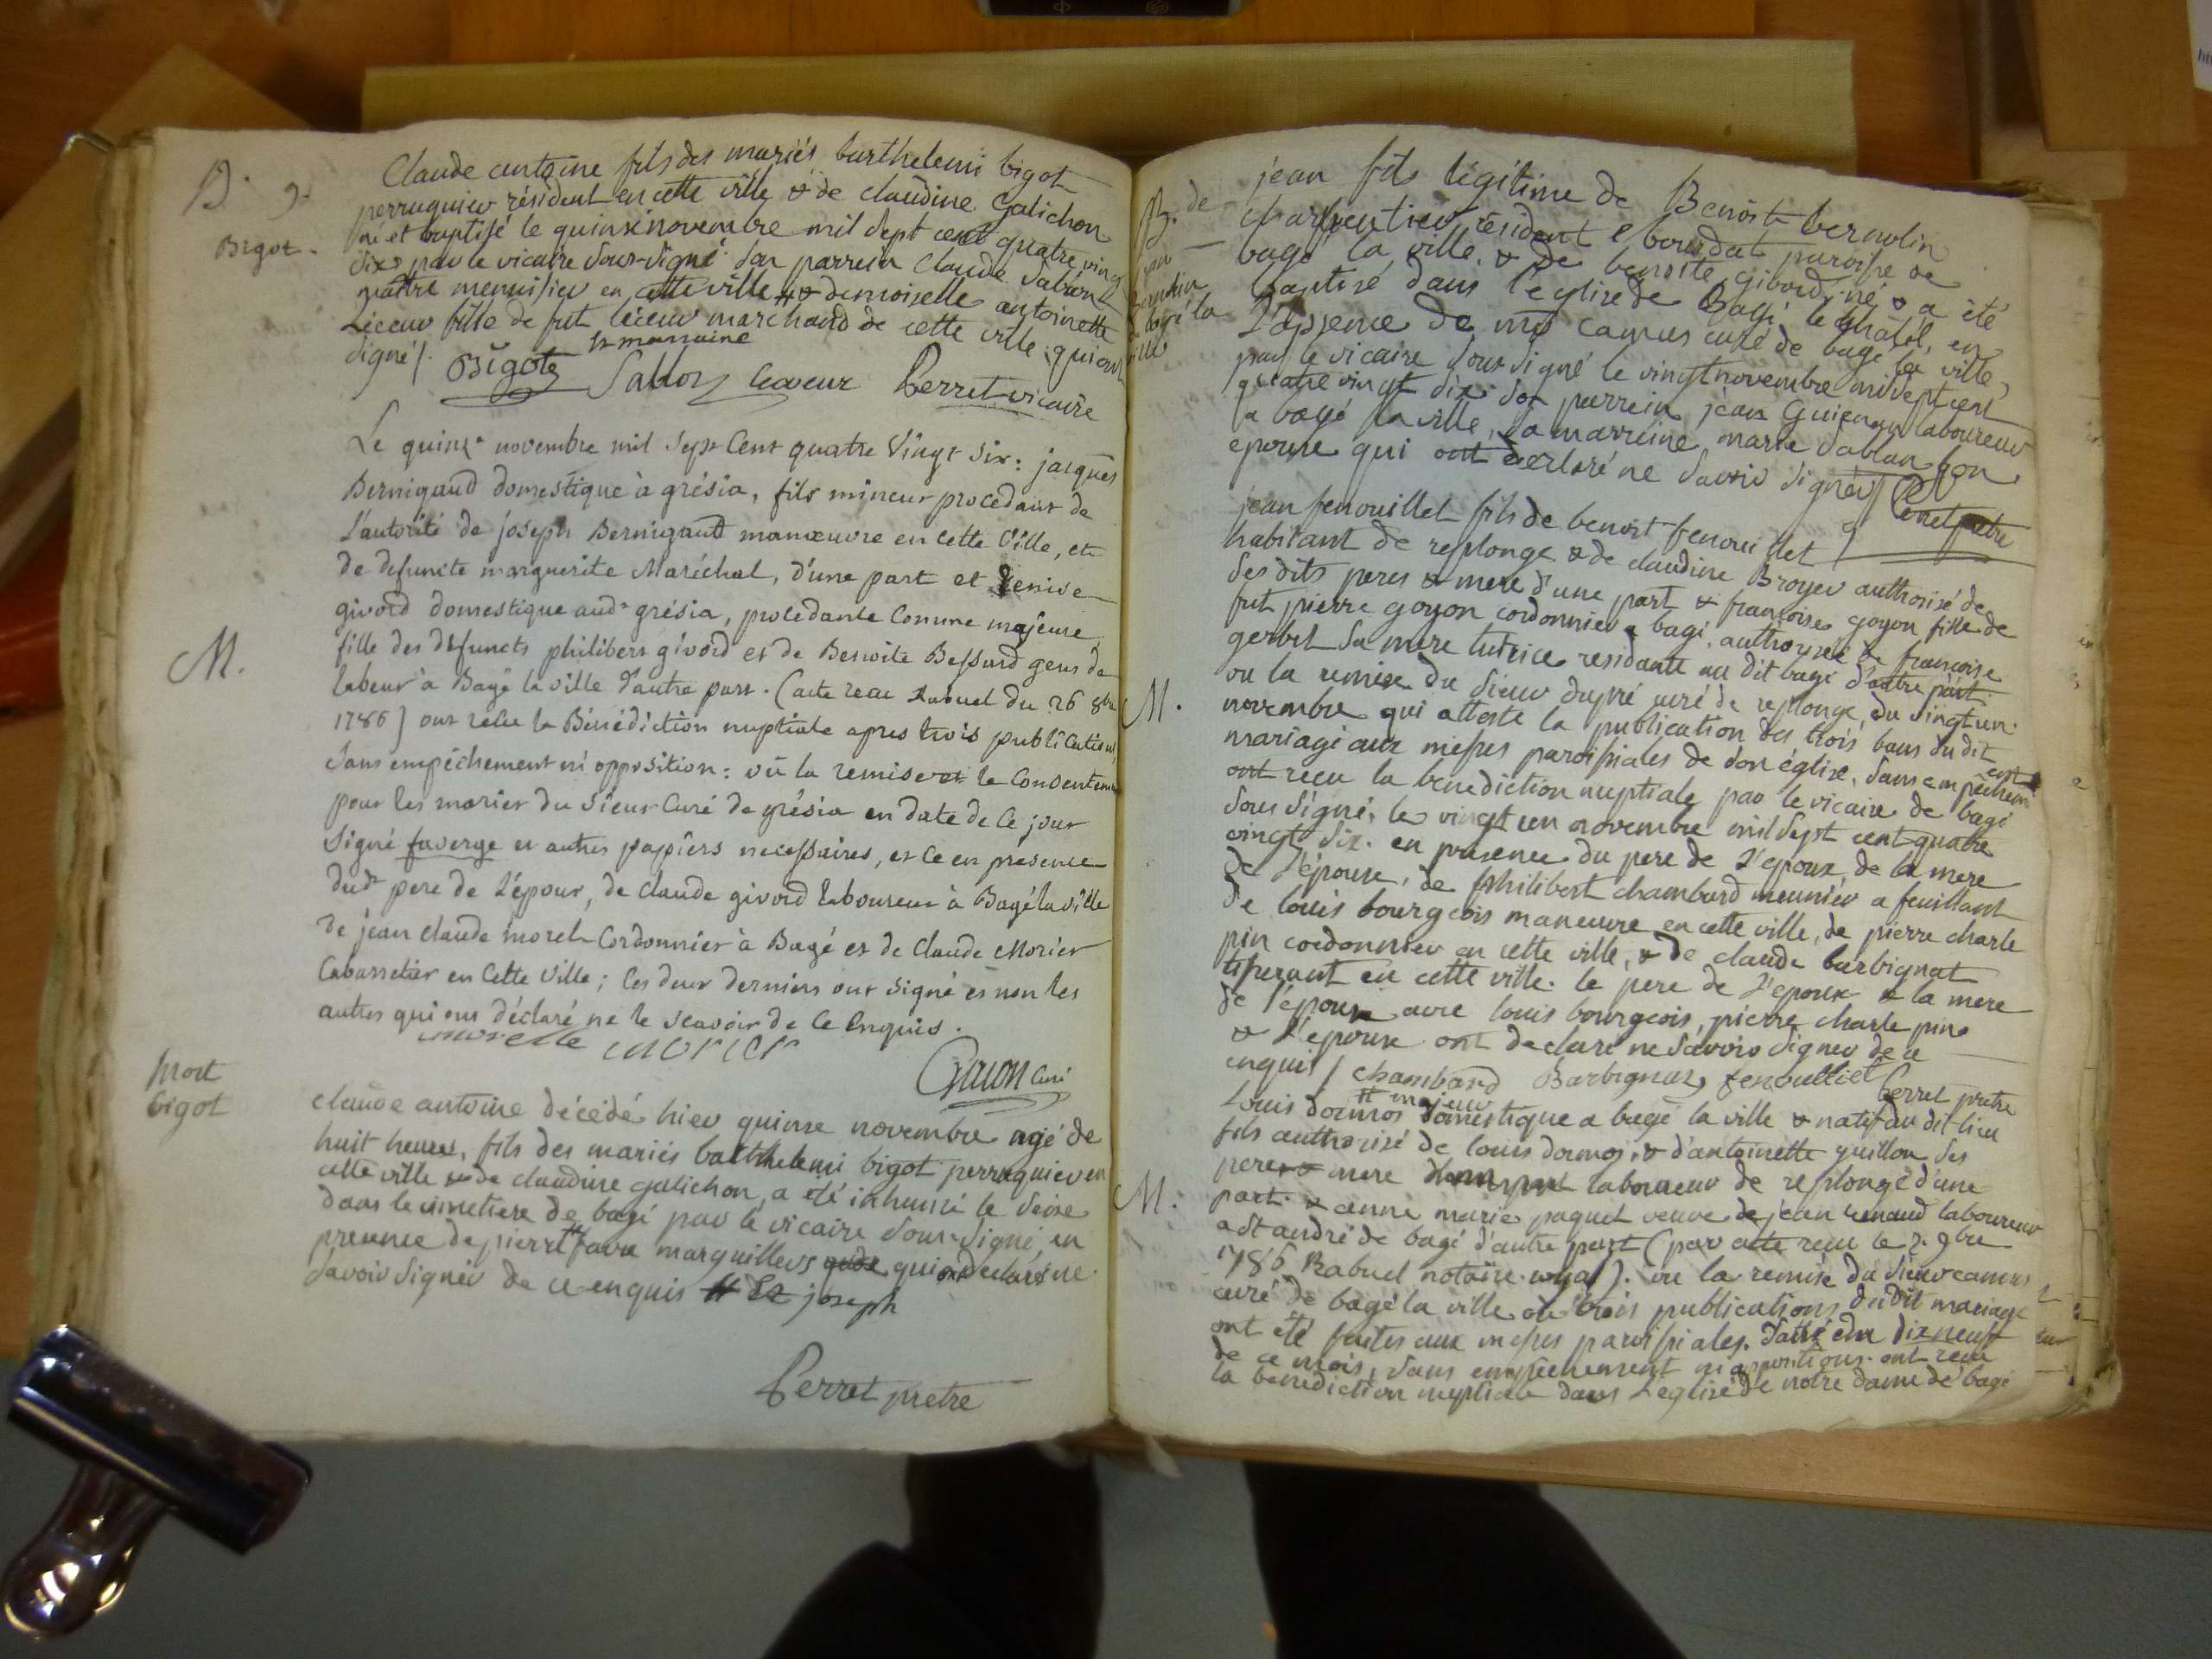 B. 9.
Bigot.
Claude antoine fils des mariés barthelemi bigot
perruquier résident en cette ville & de claudine Galichon
né et baptisé le quinze novembre mil sept cent quatre vingt
six par le vicaire sous-signé. son parrein Claude Sablon
maitre menuisier en cette ville # & demoiselle antoinette
Leceur fille de fut leceur marchand de cette ville qui ont
signé/. # marraine
Bigot Sablon leceur Perret vicaire
M.
Le quinze novembre mil sept Cent quatre Vingt Six: jacques
Bernigaud domestique à grésia, fils mineur procedant de
L'autorité de joseph Bernigaud manœuvre en cette Ville, et
de defuncte marguerite Maréchal, d'une part et Denise
givord domestique aud.t grésia, procedante Comme majeure
fille des défuncts philibert givord et de Benoite Bessard gens de
labeur à Bagé la ville d'autre part. (acte reçu Rabuel du 26 8bre
1786) ont reçu la Bénédiction nuptiale apres trois publications
sans empêchement ni opposition: vû la remise et le Consentement
pour les marier du Sieur Curé de grésia en date de Ce jour
Signé faverge et autres papiers necessaires, et Ce en présence
dud.t pere de L'épour, de Claude givord laboureur à Bagé la Ville
de jean claude morel Cordonnier à Bagé et de Claude Morier
Cabarretier en Cette Ville; les deux derniers ont signé et non les
autres qui ont déclaré ne le scavoir de Ce Enquis.
morelle morier
Curé
Mort
bigot
claude antoine décédé hier quinse novembre agé de
huit heures, fils des mariés barthelemi bigot perruquier en
cette ville & de claudine galichon, a été inhumé le seise
dans le cimetiere de bagé par le vicaire sous-signé, en
presence de pierre # favre marguilleurs qui ont declaré ne
savoir signer de ce enquis # & joseph
Perret pretre
B. de
jean
bernolin
bagé la
ville
jean fils légitime de Benoit bernolin
charpentier résident a bourdat paroisse de
bagé la ville, & de benoite gibord, né & a été
baptisé dans l'eglise de Bagé le chatel, en
L'absence de mr camus curé de bagé la ville,
par le vicaire sous signé le vingt novembre mil sept cent
quatre vingt six. son parrein jean laboureur
a bagé la ville, sa marreine marie sablon son
epouse qui ont declaré ne savoir signer/
Perret pretre
M.
jean fenouillet fils de benoit fenouillet
habitant de replonge & de claudine Broyer authorisé de
ses dits peres & mere d'une part & françoise goyon fille de
fut pierre goyon cordonnier a bagé, authorisée de françoise
gerbet sa mere tutrice residante au dit bagé d'autre part.
vu la remise du sieur dupré curé de replonge, du vingt un
novembre qui atteste la publication des trois bans du dit
mariage aux messes paroissiales de son église, sans empêchement
ont reçu la benediction nuptiale par le vicaire de bagé
sous signé, le vingt un novembre mil sept cent quatre
vingt six. en presence du pere de l'epoux, de la mere
de l'épouse, de philibert chambard meunier a feuillant
de louis bourgeois maneuvre en cette ville, de pierre charle
pin cordonnier en cette ville, & de claude barbignat
tisserant en cette ville. le pere de l'epoux & la mere
de l'épouse avec louis bourgeois, pierre charle pin
& l'epouse ont declaré ne savoir signer de ce
enquis/ chambard Barbignat fenouillet
Perret pretre
M.
Louis dormos # majeur domestique a bagé la ville & natif du dit lieu
fils authorisé de louis dormos, & d'antoinette guillon ses
pere & mere laboureur de replonge d'une
part. & anne marie paquet veuve de jean renaud laboureur
a st andré de bagé d'autre part (par acte reçu le 7. 9bre
1786 Rabuel notaire royal). vu la remise du sieur camus
curé de bagé la ville ou trois publications du dit mariage
ont été faites aux messes paroissiales. datté du dix neuf
de ce mois, sans empêchement ni oppositions. ont reçu
la benediction nuptiale dans L'eglise de notre dame de bagé